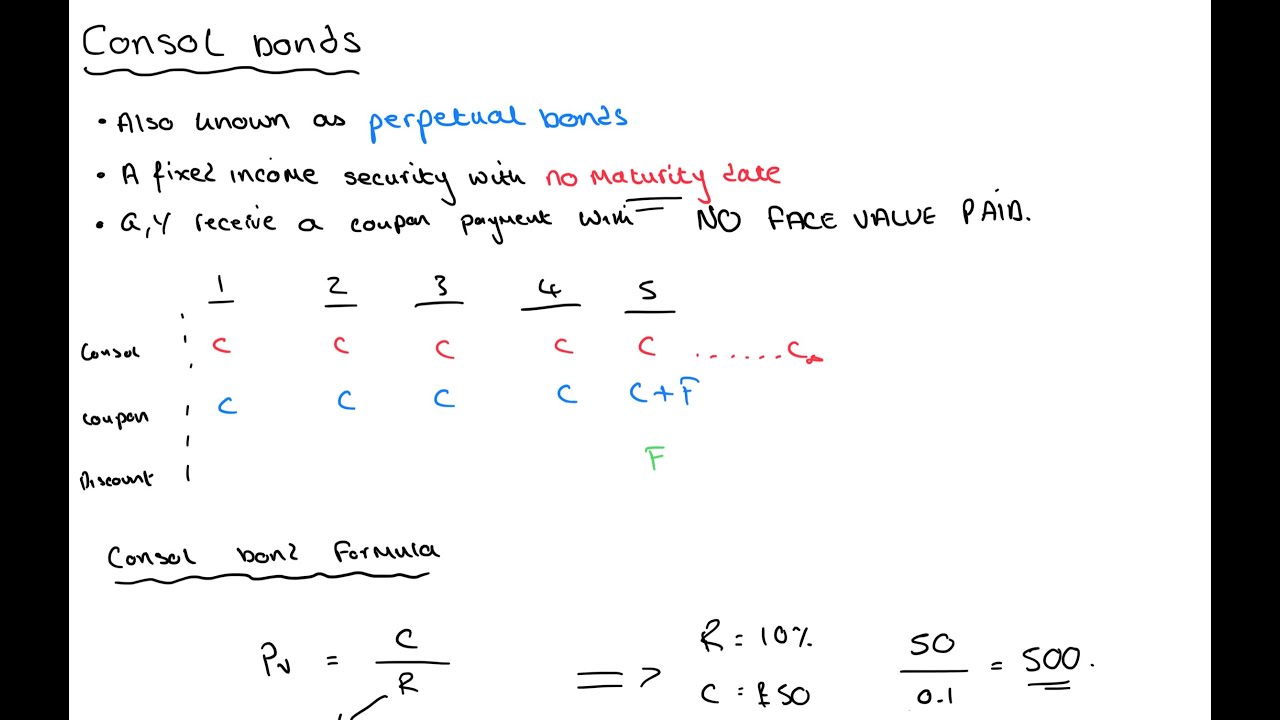 Consol bonds
• Also known as perpetual bonds
• A fixed income security with no maturity date
• Q,Y receive a coupon payment with NO FACE VALUE PAID.
1 2 3 4 5
Consol C C C C C .......C∞
Coupon C C C C C+F
Discount F
Consol bond formula
Pv = C/R => R = 10% C = £50 50/0.1 = 500.